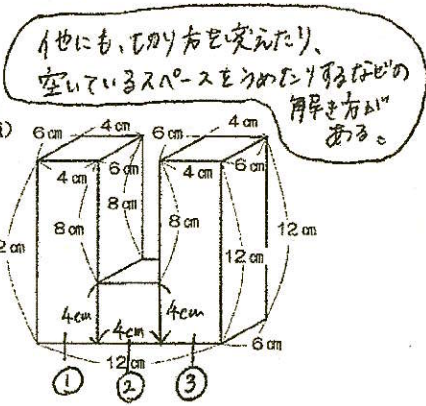 他にも、切り方を変えたり、
空いているスペースをうめたりするなどの
解き方が
ある。
6cm 4cm 4cm
6cm 6cm
4cm 6cm 4cm
8cm 8cm 8cm 12cm
2cm 12cm
4cm 4cm 4cm
12cm 6cm
① ② ③